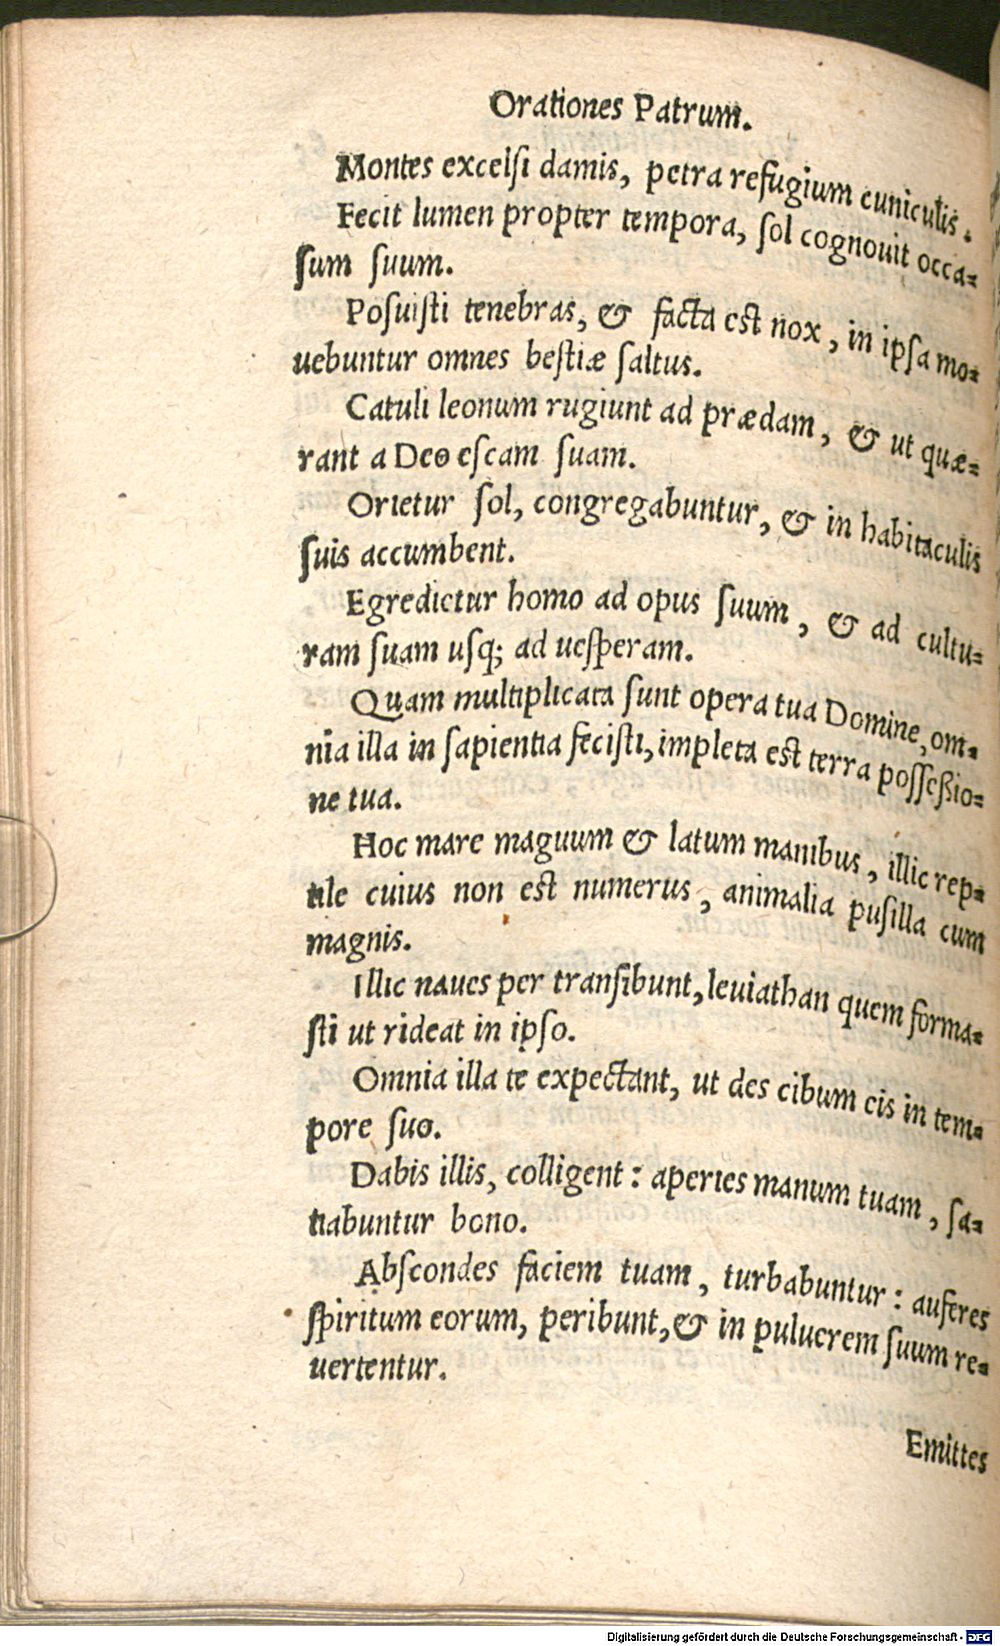 Orationes Patrum.
Montes excelſi damis, petra refugium cuniculis.
Fecit lumen propter tempora, ſol cognouit occa⸗
ſum ſuum.
Poſuiſti tenebras, & facta eſt nox, in ipſa mo⸗
uebuntur omnes beſtiæ ſaltus.
Catuli leonum rugiunt ad prædam, & ut quæ⸗
rant a Deo eſcam ſuam.
Orietur ſol, congregabuntur, & in habitaculis
ſuis accumbent.
Egredietur homo ad opus ſuum, & ad cultu⸗
ram ſuam uſq; ad ueſperam.
Quam multiplicata ſunt opera tua Domine, om⸗
nia illa in ſapientia feciſti, impleta eſt terra poſſeßio⸗
ne tua.
Hoc mare maguum & latum manibus, illic rep⸗
tile cuius non eſt numerus, animalia puſilla cum
magnis.
Illic naues per tranſibunt, leuiathan quem forma⸗
ſti ut rideat in ipſo.
Omnia illa te expectant, ut des cibum eis in tem⸗
pore ſuo.
Dabis illis, colligent: aperies manum tuam, ſa⸗
tiabuntur bono.
Abſcondes faciem tuam, turbabuntur: auferes
ſpiritum eorum, peribunt, & in puluerem ſuum re⸗
uertentur.
Emittes
Digitalisierung gefördert durch die Deutsche Forschungsgemeinschaft - DFG